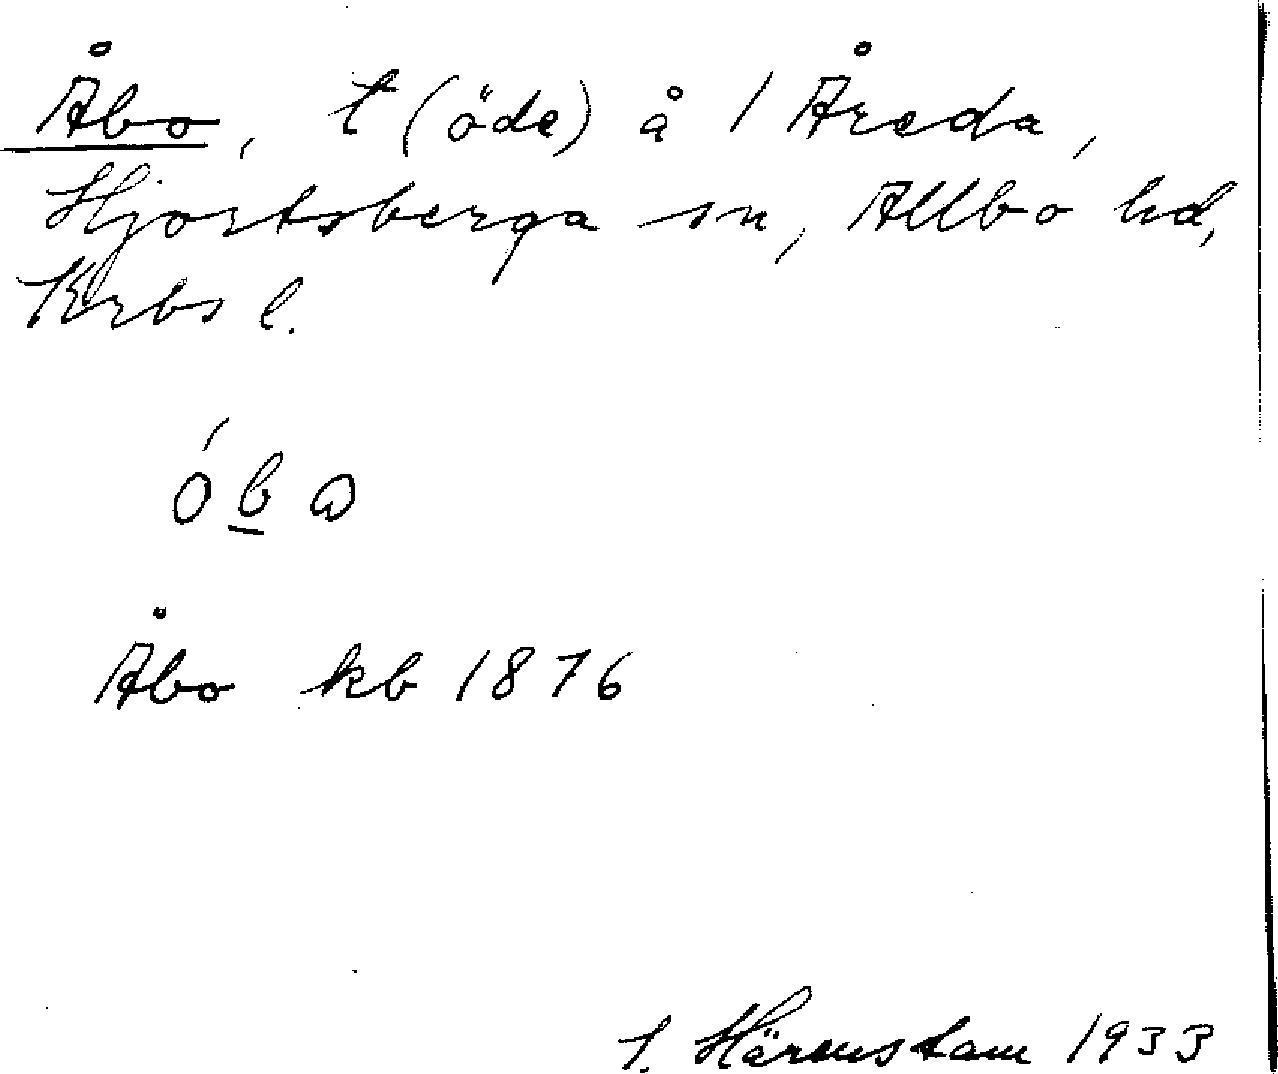 Åbo, t (öde) å 1 Åreda,
Hjortsberga sn, Allbo hd,
Krbs l.
óbω
Åbo kb 1876
I. Härenstam 1933